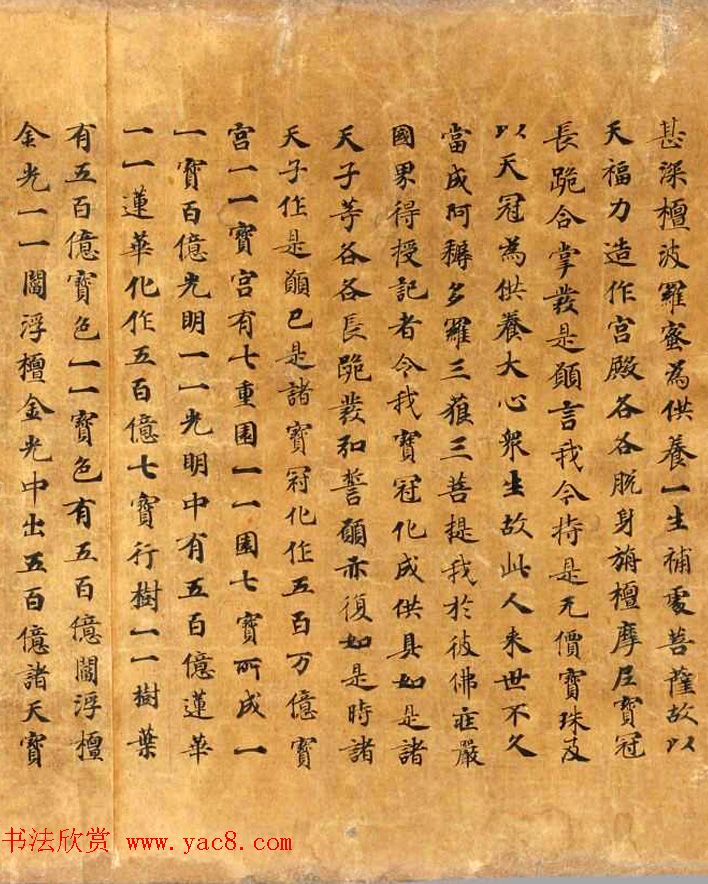 甚深檀波羅蜜為供養一生補處菩薩故以
天福力造作宮殿各各脫身旃檀摩尼寶冠
長跪合掌發是願言我今持是无價寶珠及
以天冠為供養大心衆生故此人来世不久
當成阿耨多羅三藐三菩提我於彼佛莊嚴
國界得授記者令我寶冠化成供具如是諸
天子等各各長跪發弘誓願亦復如是時諸
天子作是願已是諸寶冠化作五百万億寶
宮一一寶宮有七重園一一園七寶所成一
一寶百億光明一一光明中有五百億蓮華
一一蓮華化作五百億七寶行樹一一樹葉
有五百億寶色一一寶色有五百億閻浮檀
金光一一閻浮檀金光中出五百億諸天寶
书法欣赏 www.yac8.com